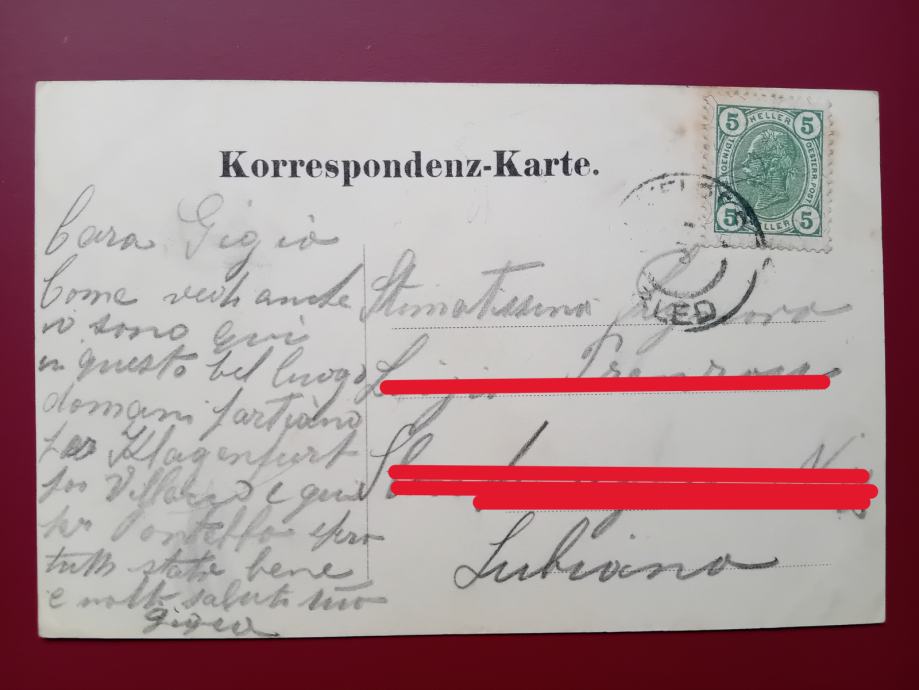 Korrespondenz-Karte.
5 HELLER 5
OESTERR. POST
5 HELLER 5
VELDES
BLED
Cara Gigia
Come vedi anche
io sono qui
in questo bel luogo
domani partiamo
per Klagenfurt
poi Villacco e quindi
per Pontebba spero
tutti state bene
e molti saluti tuo
Stimatissima Signora
Lubiana